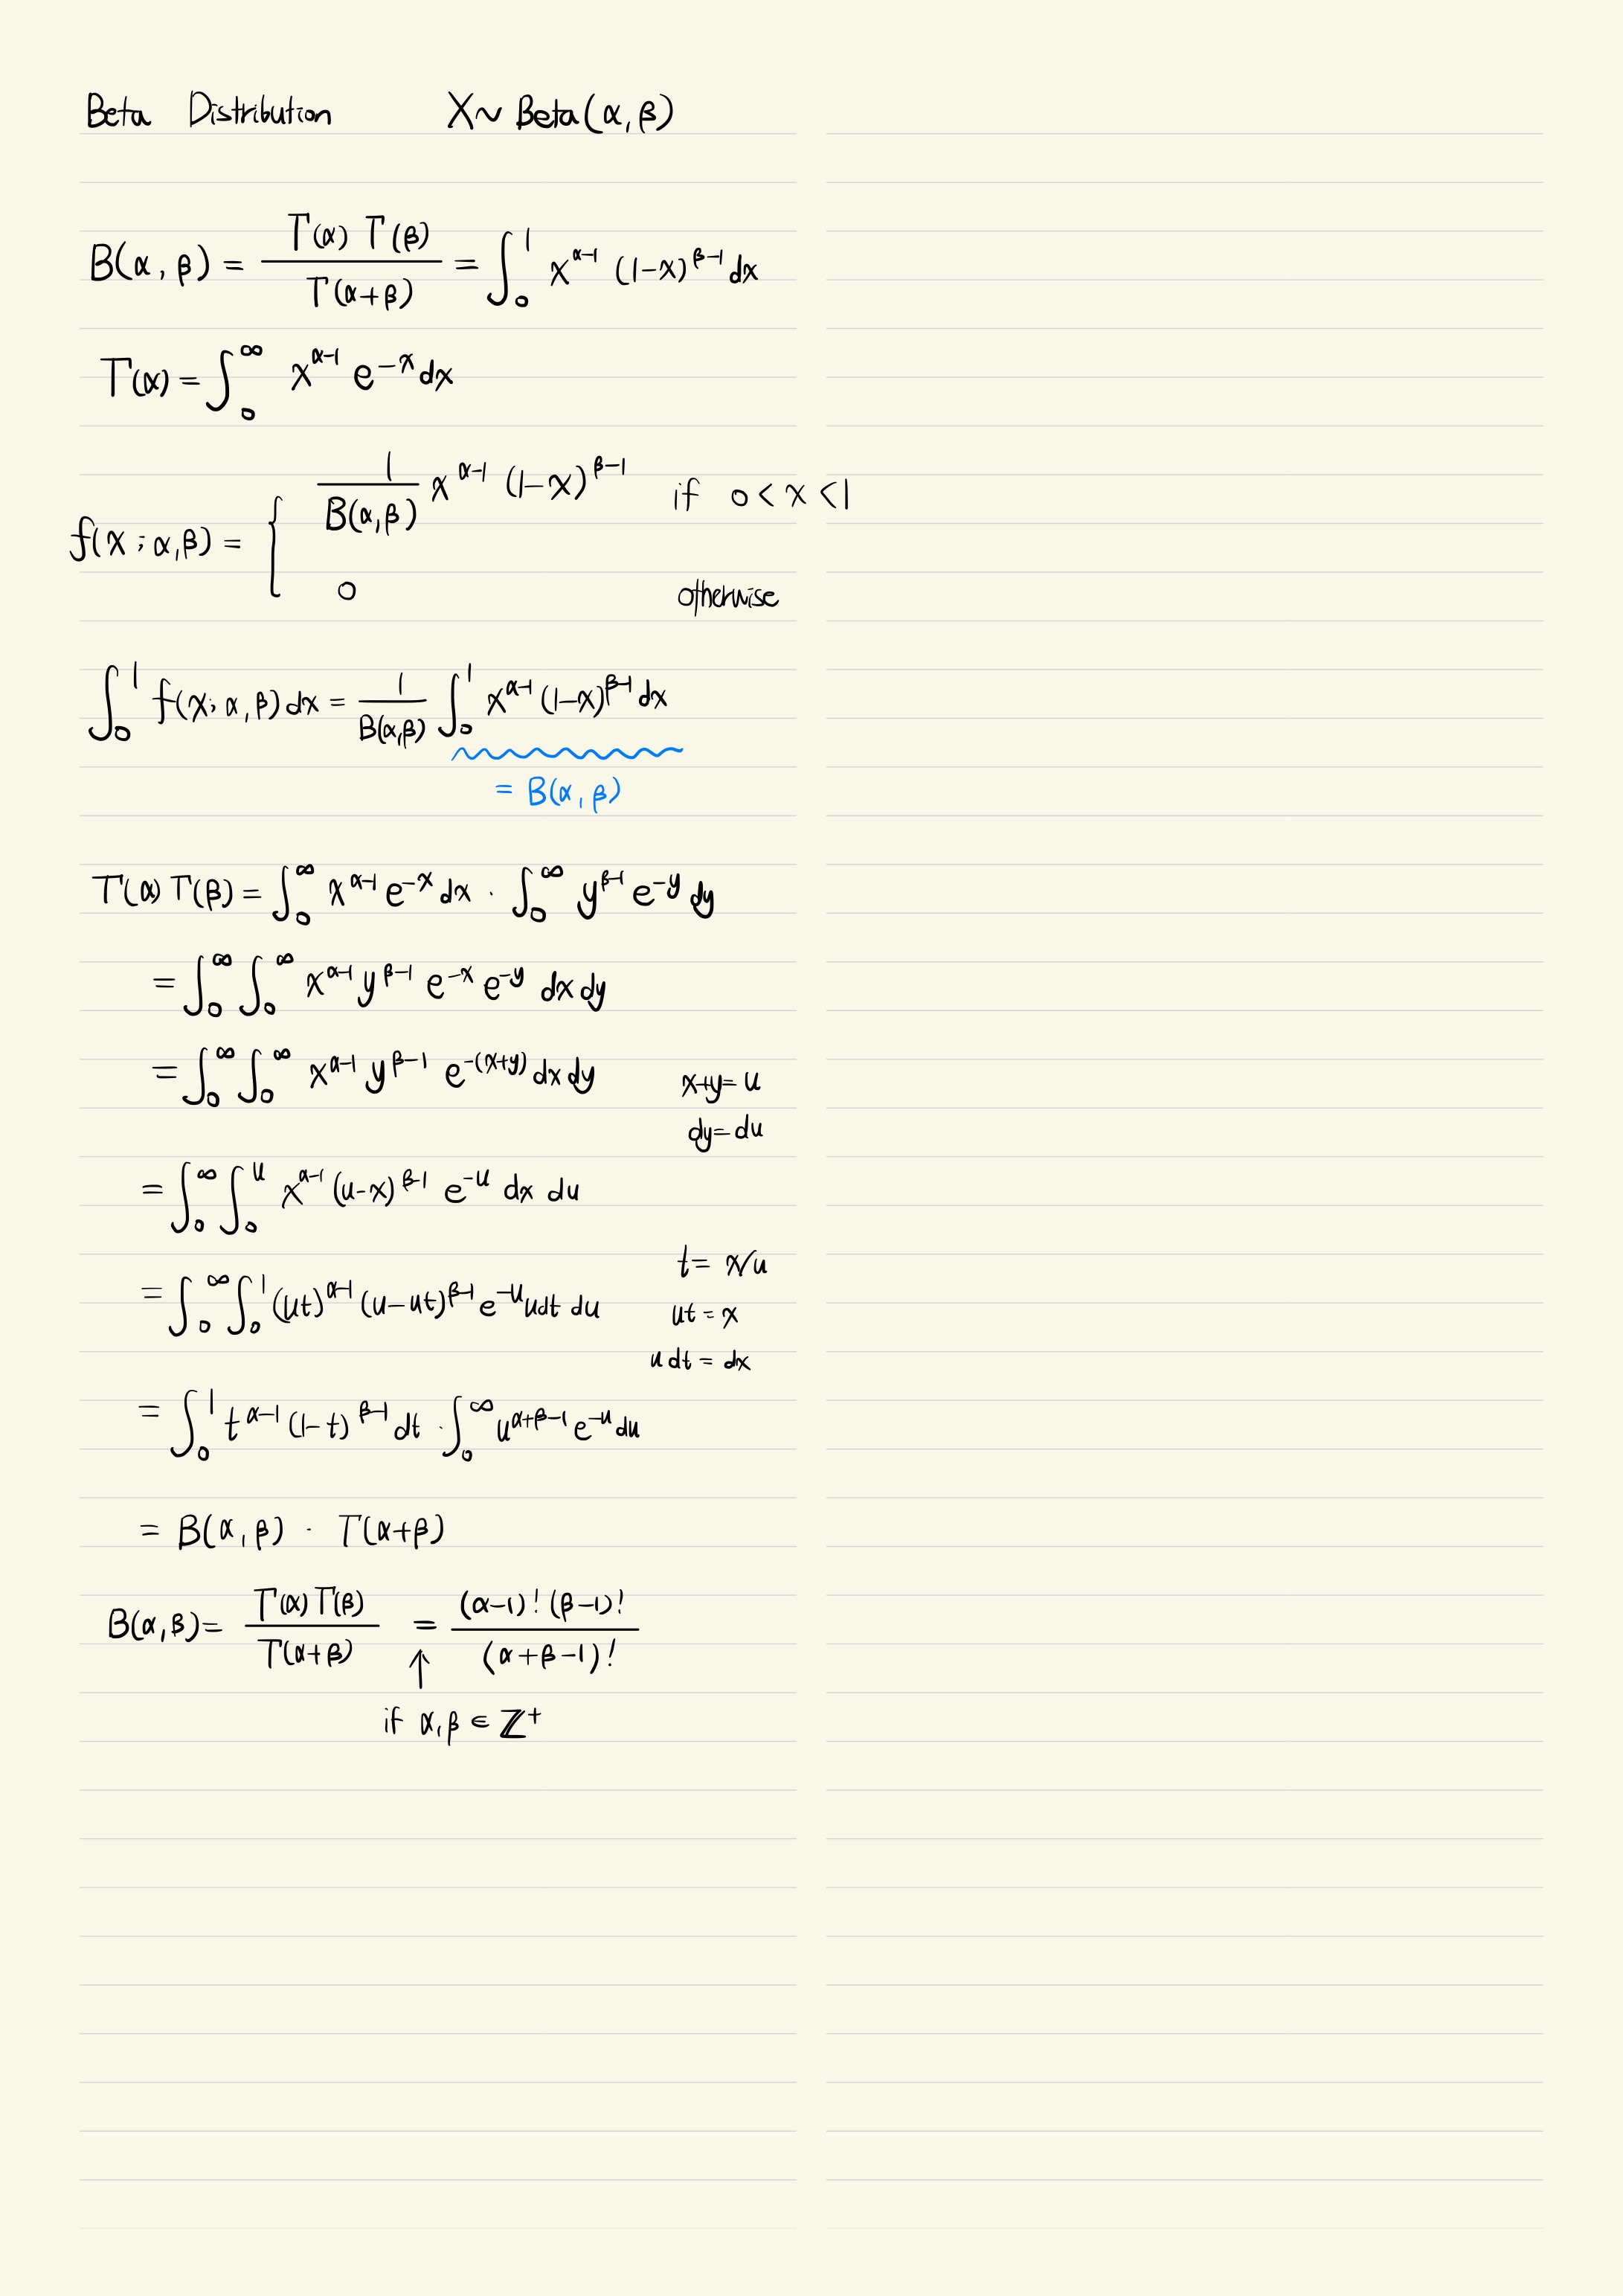 Beta Distribution X ~ Beta(α, β)
B(α, β) = Γ(α) Γ(β) / Γ(α+β) = ∫₀¹ x^(α-1) (1-x)^(β-1) dx
Γ(α) = ∫₀^∞ x^(α-1) e^(-x) dx
f(x ; α, β) = { 1/B(α, β) x^(α-1) (1-x)^(β-1) if 0 < x < 1
0 otherwise
∫₀¹ f(x; α, β) dx = 1/B(α,β) ∫₀¹ x^(α-1) (1-x)^(β-1) dx
= B(α, β)
Γ(α) Γ(β) = ∫₀^∞ x^(α-1) e^(-x) dx · ∫₀^∞ y^(β-1) e^(-y) dy
= ∫₀^∞ ∫₀^∞ x^(α-1) y^(β-1) e^(-x) e^(-y) dx dy
= ∫₀^∞ ∫₀^∞ x^(α-1) y^(β-1) e^(-(x+y)) dx dy x+y = u
dy = du
= ∫₀^∞ ∫₀^u x^(α-1) (u-x)^(β-1) e^(-u) dx du
t = x/u
= ∫₀^∞ ∫₀¹ (ut)^(α-1) (u-ut)^(β-1) e^(-u) u dt du ut = x
u dt = dx
= ∫₀¹ t^(α-1) (1-t)^(β-1) dt · ∫₀^∞ u^(α+β-1) e^(-u) du
= B(α, β) · Γ(α+β)
B(α, β) = Γ(α) Γ(β) / Γ(α+β) = (α-1)! (β-1)! / (α+β-1)!
↑
if α, β ∈ ℤ⁺